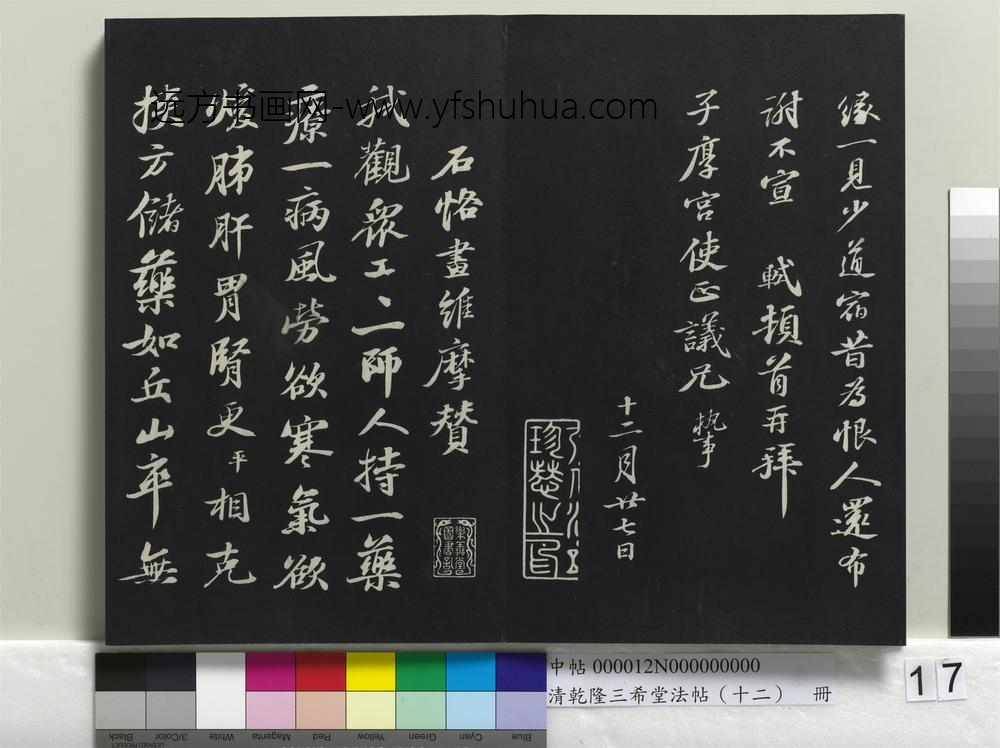 緣一見少道宿昔為恨人還布
謝不宣 軾頓首再拜
子厚宮使正議兄 執事
十二月廿七日
石恪畫維摩贊
我觀衆工工師人持一藥
療一病風勞欲寒氣欲
煖肺肝胃腎更平相克
挾方儲藥如丘山卒無
远方书画网-www.yfshuhua.com
中帖 000012N000000000
清乾隆三希堂法帖（十二） 冊
17
Black
3/Color
White
Magenta
Red
Yellow
Green
Cyan
Blue